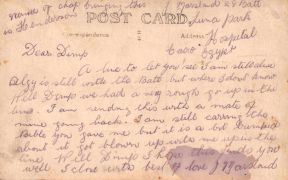 names of chap bringing this
is Henderson
J Marsland 2 & Batt
Luna Park
Hospital
Cairo
Egypt
POST CARD.
Correspondence
Dear Dimp
A line to let you see I am still alive
Alzy is still with the Batt but where I dont know
Well Dimp we had a very rough go up in the
line. I am sending this with a mate of
mine going back. I am still carring the
Bible you gave me but it is a bit
about it got blown up with me up in the
line Well Dimp I hope this finds you
well I close with best of love J Marsland